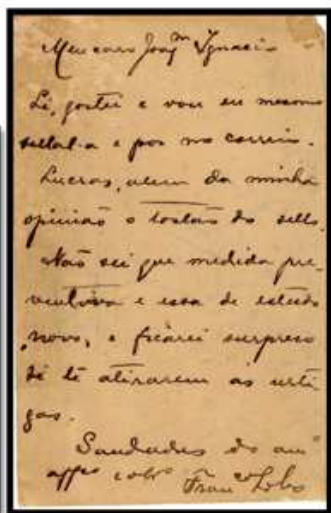 Meu caro Joaqm Ignacio
Li, gostei e vou eu mesmo
sellal-a e por no correio.
Lucras, alem da minha
opinião o tostão do sello.
Não sei que medida pre-
ventiva e essa de estado
novo, e ficarei surpreso
se te atirarem ás urti-
gas.
Saudades do amo
affco colo Franco Lobo